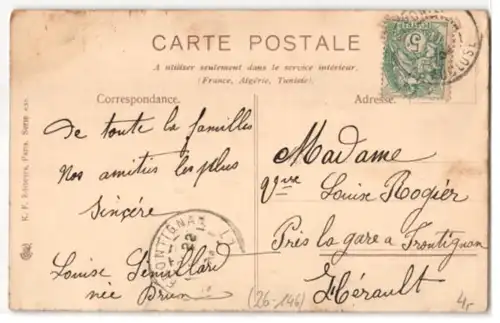 CARTE POSTALE
A utiliser seulement dans le service intérieur.
(France, Algérie, Tunisie).
Correspondance.
Adresse.
K. F. Editeurs, Paris.
de toute la familles
Nos amities les plus
Sincére
Louise
née Brun
Madame
Vve Louise Rogier
Près la gare a Frontignan
Hérault
5
FRONTIGNAN
22
(26-146)
4,-